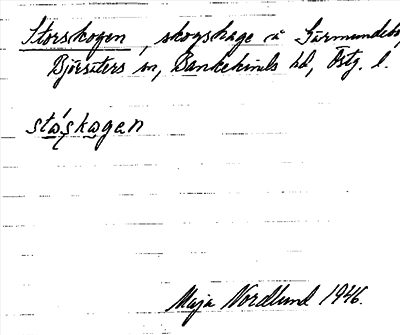 Storskogen, skogshage å Gärmundeby,
Björsäters sn, Bankekinds hd, Östg. l.
stɷ́skɷgɐn
Maja Nordlund 1946.